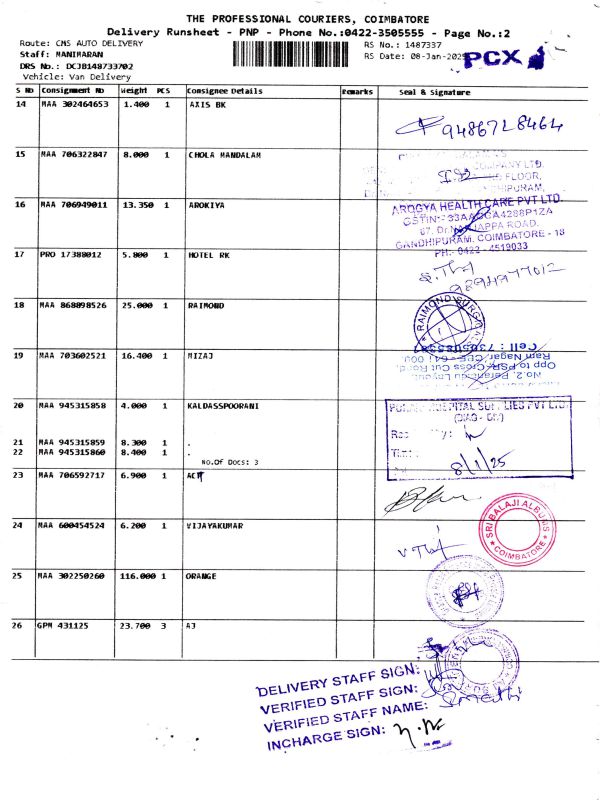 THE PROFESSIONAL COURIERS, COIMBATORE
Delivery Runsheet - PNP - Phone No.:0422-3505555 - Page No.:2
Route: CMS AUTO DELIVERY
RS No.: 1487337
Staff: MANIMARAN
RS Date: 08-Jan-2025
PCX
DRS No.: DCJB148733702
Vehicle: Van Delivery
S No Consignment No Weight PCS Consignee Details Remarks Seal & Signature
14 MAA 302464653 1.400 1 AXIS BK
9486728464
15 MAA 706322847 8.000 1 CHOLA MANDALAM
COMPANY LTD.
FLOOR,
16 MAA 706949011 13.350 1 AROKIYA
AROGYA HEALTH CARE PVT LTD.
GSTIN: 33AADCA4288P1ZA
67, Dr. NANJAPPA ROAD,
GANDHIPURAM, COIMBATORE - 18
PH: 0422 - 4519033
17 PRO 17388012 5.800 1 HOTEL RK
9894977012
18 MAA 868898526 25.000 1 RAIMOND
RAIMOND SURGICAL
19 MAA 703602521 16.400 1 MIZAJ
Opp to PSR, Cross Cut Road,
Ram Nagar, CBE - 641 009
20 MAA 945315858 4.000 1 KALDASSPOORANI
HOSPITAL SUPPLIES PVT LTD
21 MAA 945315859 8.300 1 .
22 MAA 945315860 8.400 1 .
No.Of Docs: 3
8/1/25
23 MAA 706592717 6.900 1 ACT
SRI BALAJI ALBUMS
COIMBATORE
24 MAA 600454524 6.200 1 VIJAYAKUMAR
25 MAA 302250260 116.000 1 ORANGE
26 GPM 431125 23.700 3 AJ
DELIVERY STAFF SIGN:
VERIFIED STAFF SIGN:
VERIFIED STAFF NAME:
INCHARGE SIGN: